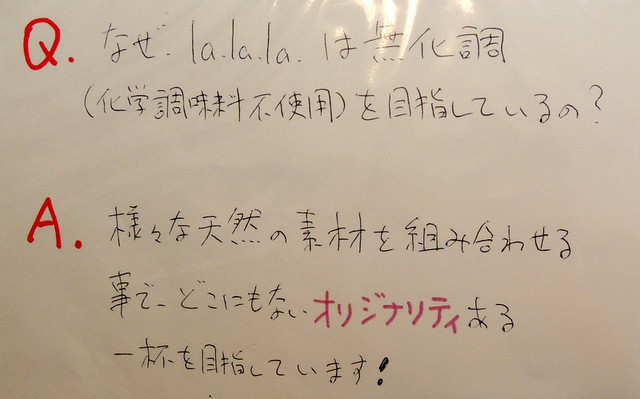 Q. なぜ、la.la.la.は無化調
(化学調味料不使用)を目指しているの?
A. 様々な天然の素材を組み合わせる
事で、どこにもないオリジナリティある
一杯を目指しています!